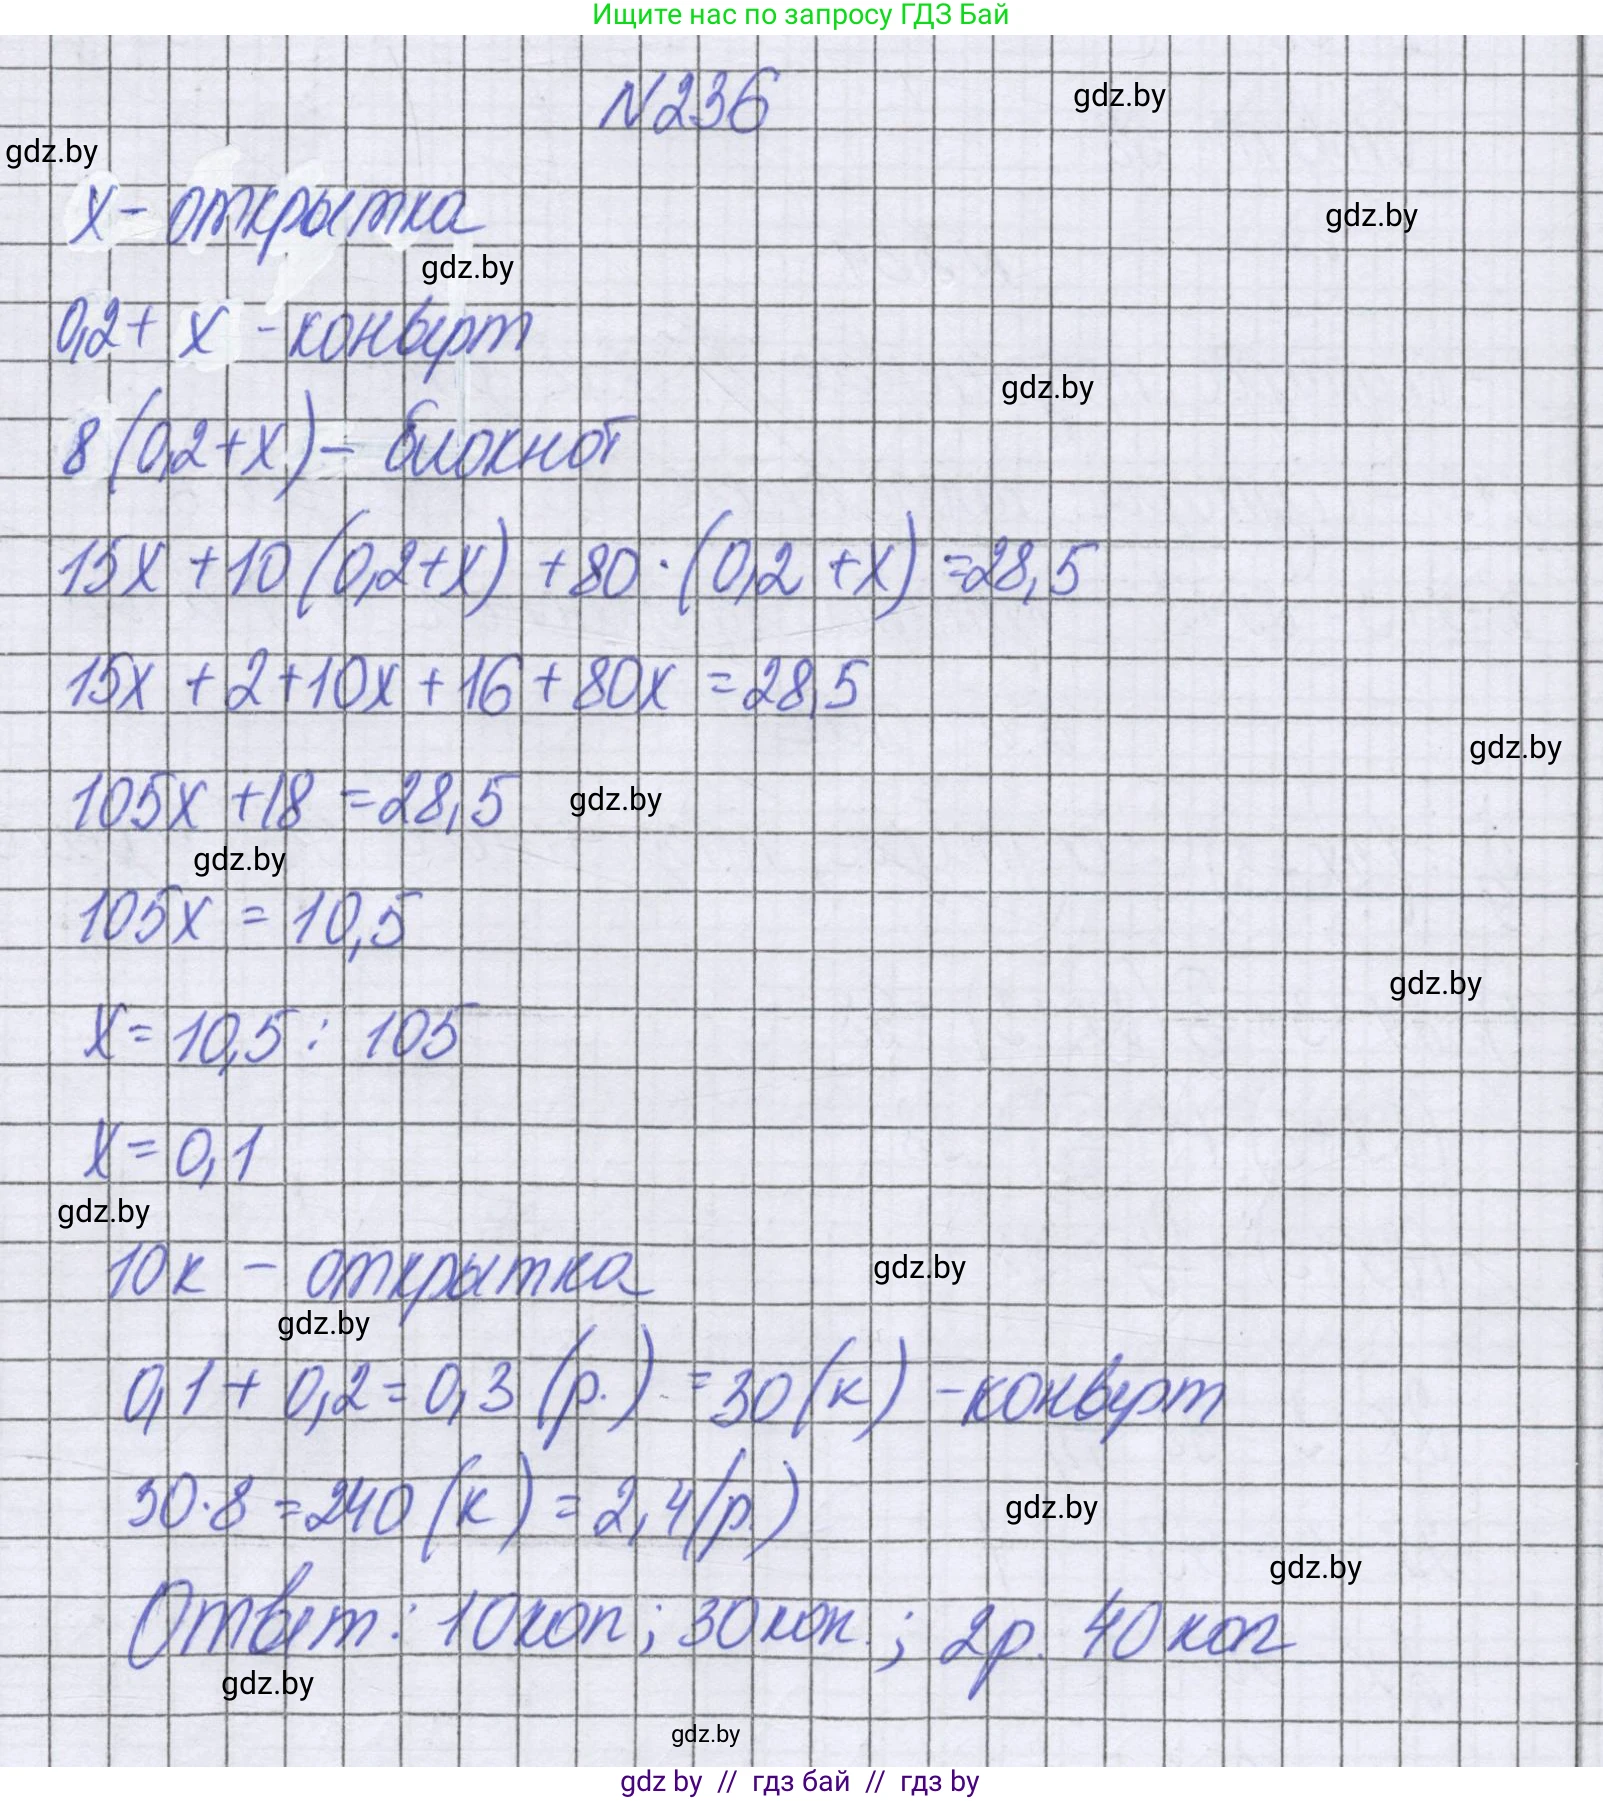 Ищите нас по запросу ГДЗ Бай
N236
gdz.by
gdz.by
x - открытка
gdz.by
gdz.by
0,2 + x - конверт
gdz.by
8 (0,2 + x) - блокнот
15x + 10 (0,2 + x) + 80 · (0,2 + x) = 28,5
15x + 2 + 10x + 16 + 80x = 28,5
gdz.by
105x + 18 = 28,5
gdz.by
gdz.by
105x = 10,5
gdz.by
x = 10,5 : 105
x = 0,1
gdz.by
10к - открытка
gdz.by
gdz.by
0,1 + 0,2 = 0,3 (р.) = 30 (к) - конверт
30 · 8 = 240 (к) = 2,4 (р.)
gdz.by
gdz.by
Ответ: 10 коп; 30 коп.; 2р. 40 коп
gdz.by
gdz.by
gdz by // гдз бай // гдз by